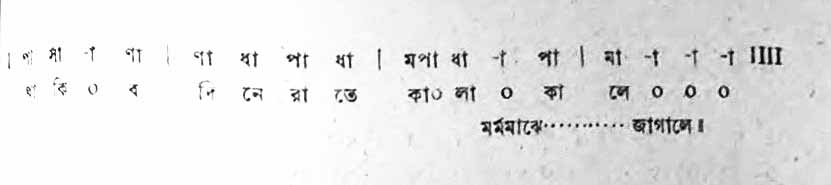 । পা মা -া গা । গা ধা পা ধা । মপা ধা -া পা । মা -া -া -া IIII
থা কি ০ ব দি নে রা তে কা০ লা ০ কা লে ০ ০ ০
মর্মমাঝে············ জাগালে॥